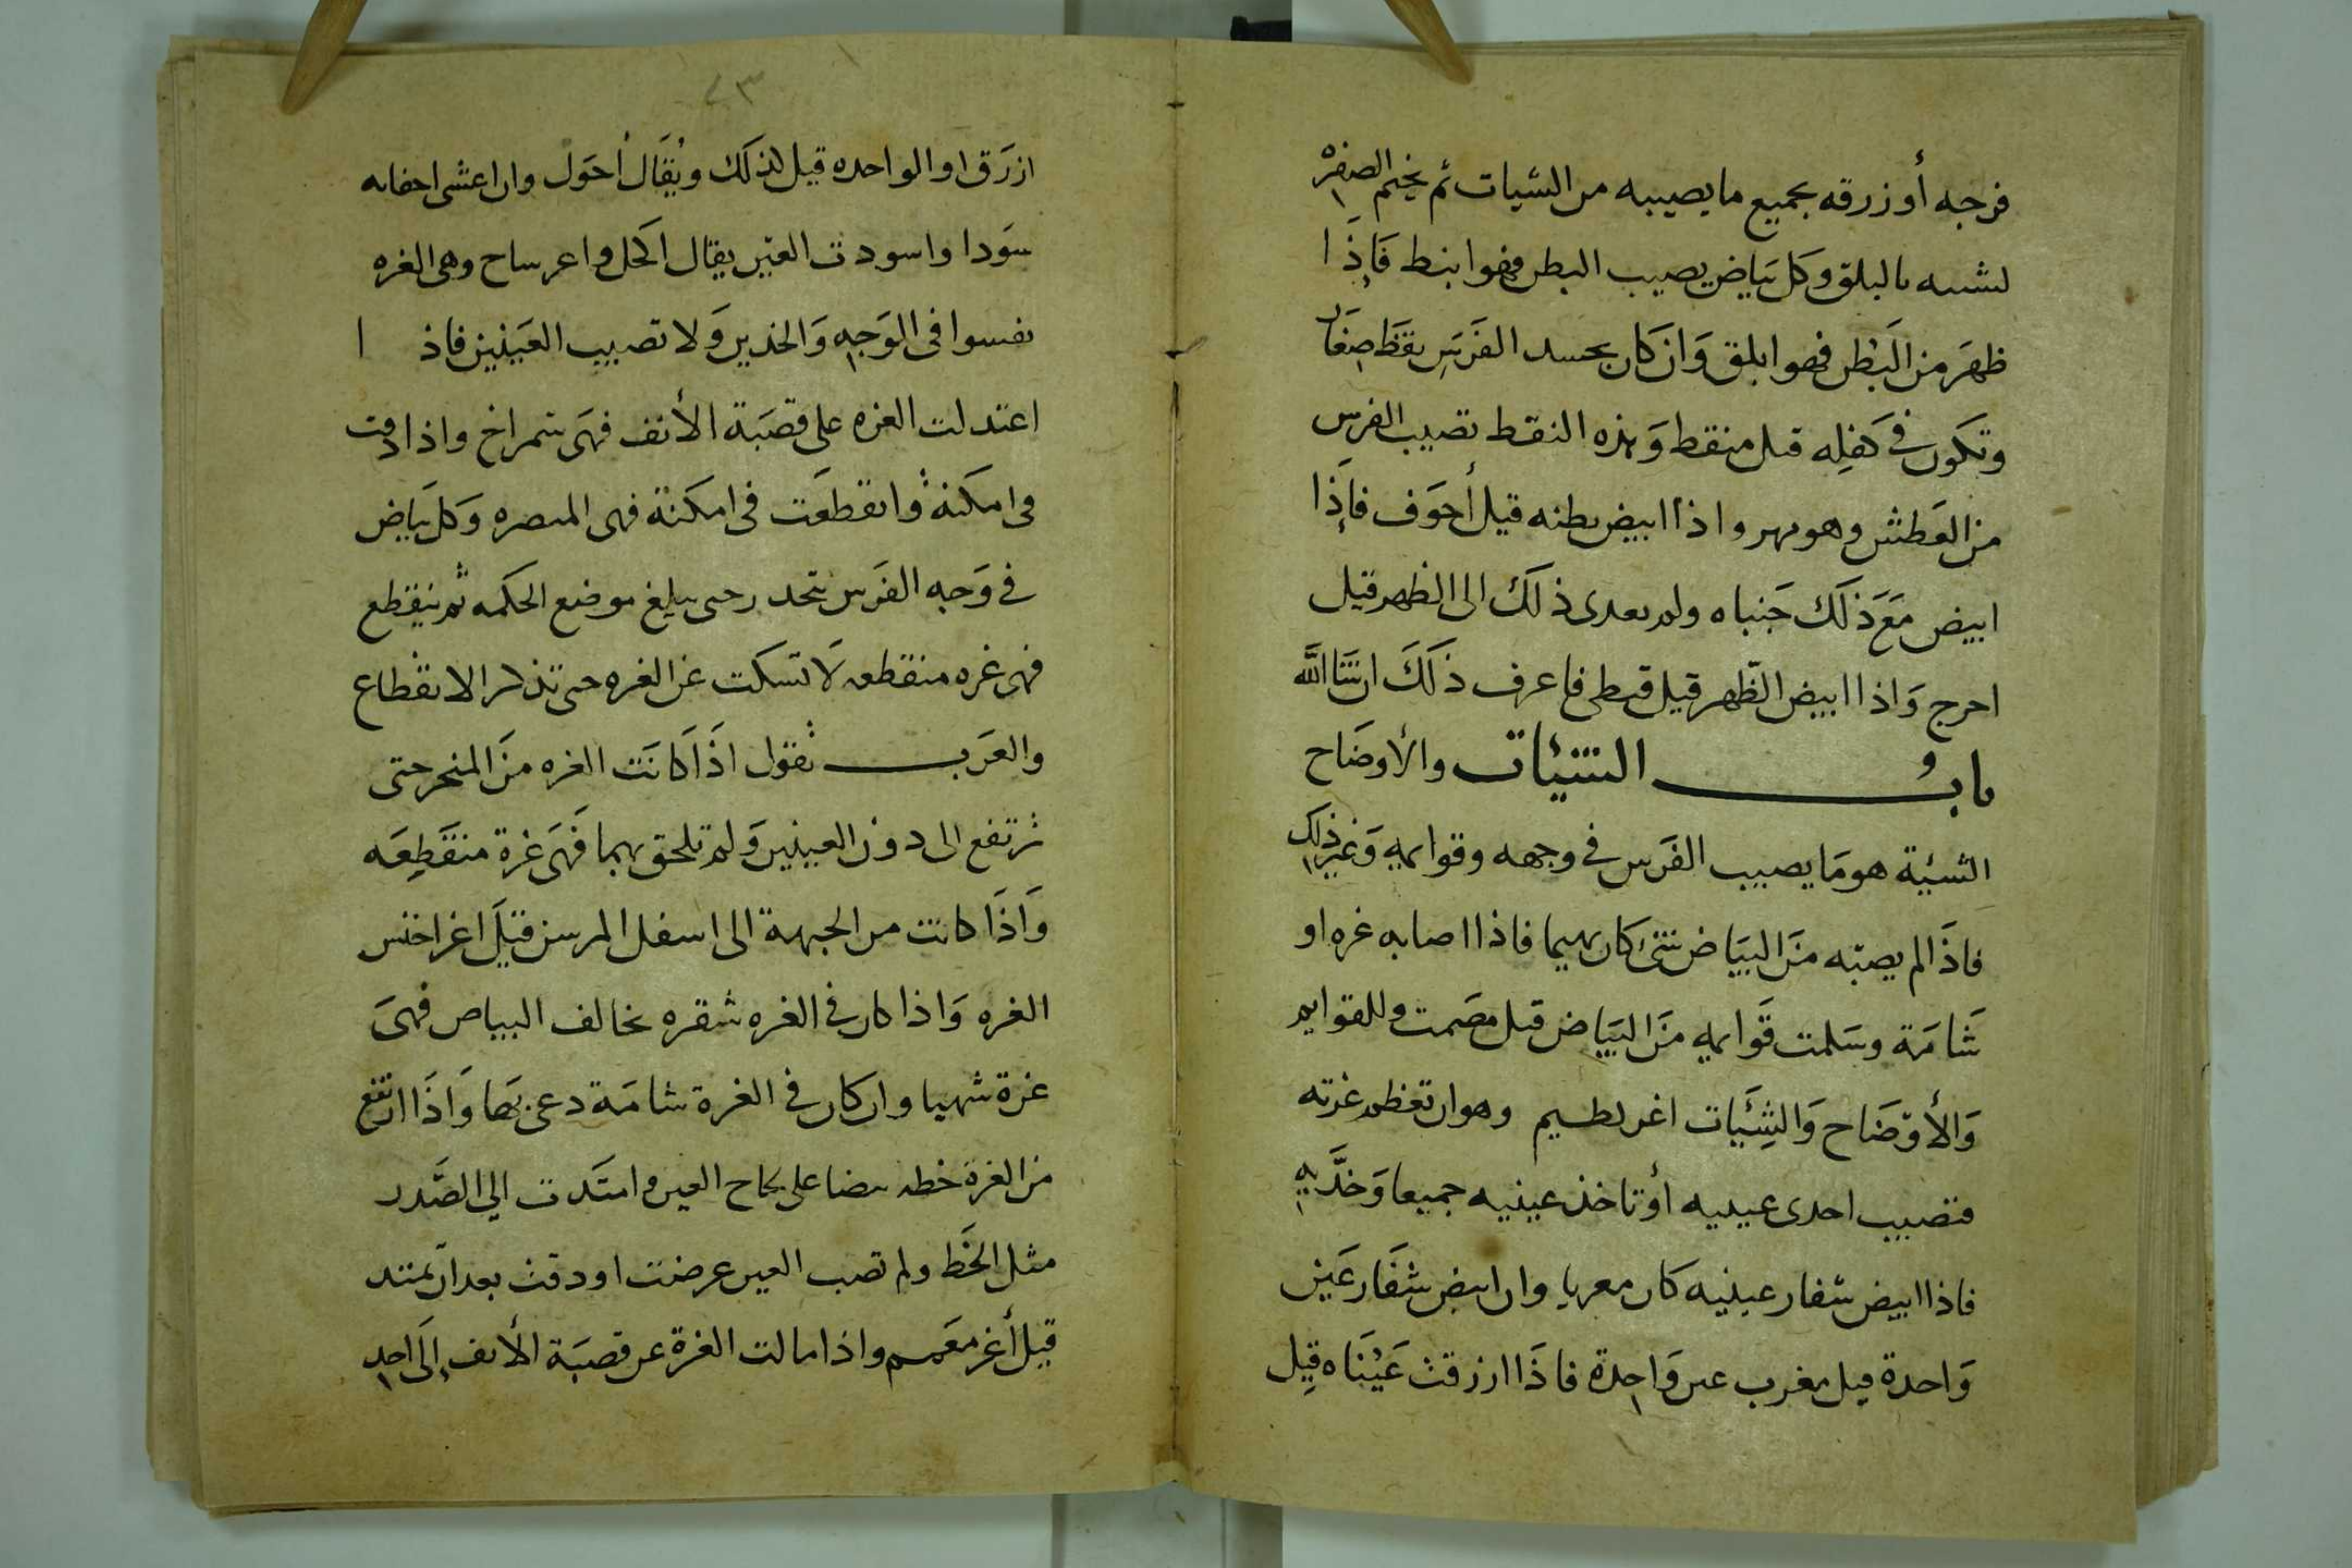 فرجه أو زرقه بجميع ما يصيبه من الشيات ثم يختم الصفره
لشبه بالبلق وكل بياض يصيب البطن فهو انبط فَإِذَا
ظهَر مِن البَطن فهو ابلق وَان كان بجسد الفَرَسِ نقَط صِغَار
وتكون في كفلِه قيل منقط وَهذه النقط تصيب الفرس
من العَطش وهو مهر واذا ابيض بطنه قيل أجوَف فاِذَا
ابيض مَعَ ذلَك جَنباه ولم يعدى ذلَكَ الى الظهر قيل
اخرج وَاذا ابيض الظّهر قيل قبطى فاعرف ذلَكَ ان شَا اللَّه
بابُ الشئيات والأوضَاح
الشيئة هو مَا يصيب الفَرَس في وجهه وقوايمهِ وَغيرِ ذلك
فاذَا لم يصبْه مَنَ البَيَاض شئ كان بهيما فاذا اصابه غره او
شَامَة وسَلمت قَوايمه مَنَ البَيَاض قيل مصَمت وللقوايم
وَالأوْضَاح وَالشِئَيات اغر لطيم وهو ان تعظم غرته
فتصيب احدى عينيه أو تاخذ عينيه جميعا وَخدَّيهِ
فاذا ابيض شفار عينيه كان مغربا وان ابيض شفَار عَين
وَاحدة قيل مغرب عين وَاحِدة فاذَا ازرقت عَيْنَاه قِيل
٧٣
ازرَق او الواحده قيل لذلَك ويُقَال أحوَل وان اعشى اجفانه
سَودا واسودت العَين يقال اكَحل واعر ساح وهى الغره
تفسوا فى الوَجهِ وَالخدين وَلا تصيب العَينين فاذا
اعتدلت الغره على قصَبَة الأنف فهَى شمراخ واذا دقت
فى امكنة وانقطعَت فى امكنة فهى المبصره وَكل بَياض
في وَجه الفَرَس تنحدر حتى يبلغ موضع الحكَمه ثم ينقطع
فهى غره منقطعه لَا تسكت عن الغره حتى تذكر الانقطاع
والعَرَب تقول اذَا كَانَت الغره منَ المنحر حتى
ترتفع الى دون العينين وَلم تلحق بهما فَهَى غرة منقَطِعَه
وَاَذَا كانت من الجبهة الى اسفل المرسن قيلَ اغر اخنس
الغره وَاذا كان في الغره شقره تخالف البياض فهىَ
غرة شهبا وان كان في الغرة شامَة دعى بهَا وَاَذَا ارتفع
من الغرة خطه بيضا على حجاح العين وامتَدت الي الصَّدر
مثل الخَط ولم تصب العين عرضت او دقت بعد ان تمتد
قيل أغر معَمم واذا مالت الغرة عن قصبَة الأنف إلَى احدِ